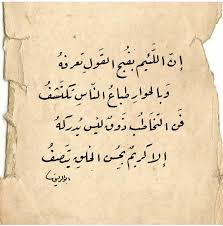 إنّ اللّئيم بقبح القول تعرفهُ
وبالحوار طباعُ النّاس تكتشفُ
فنّ التخاطب ذوقٌ ليس يدركهُ
إلا كريمٌ بحسن الخلق يتّصفُ